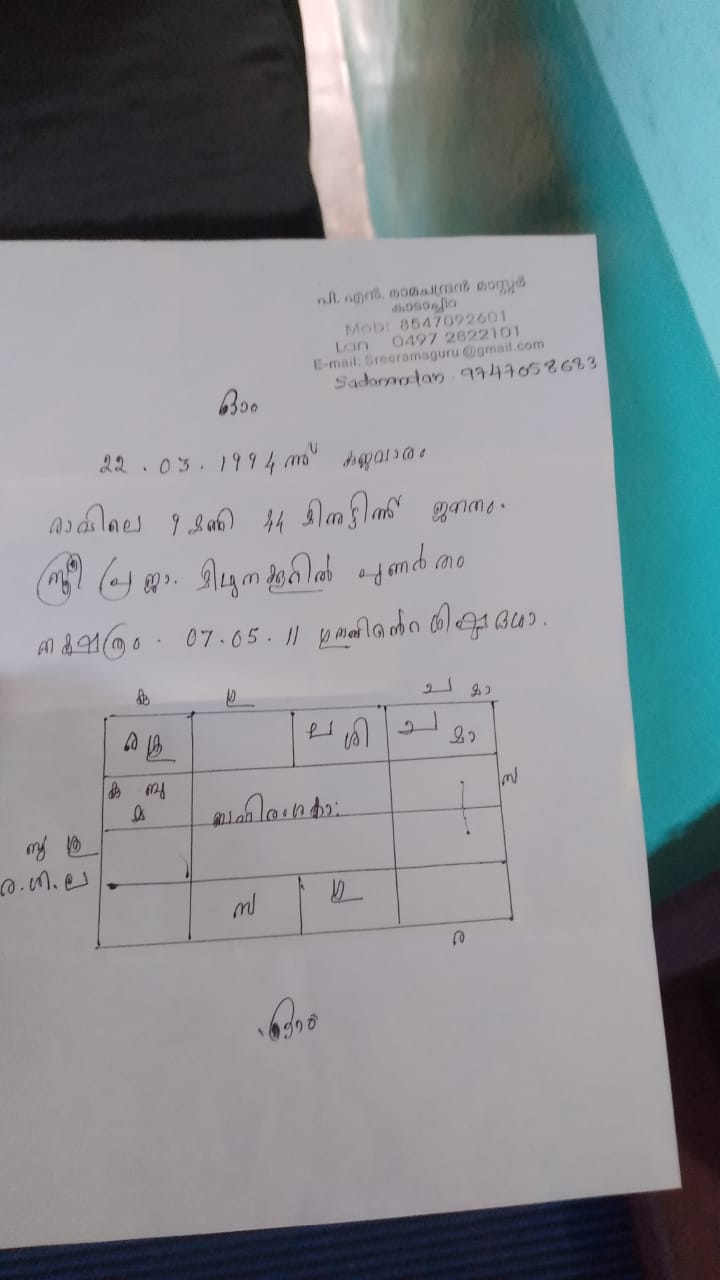 പി. എൻ. രാമചന്ദ്രൻ മാസ്റ്റർ
കാടാച്ചിറ
Mob: 8547092601
Lan 0497 2822101
E-mail: Sreeramaguru@gmail.com
Sadanandan. 9747058683
ഓം
22.03.1994 ന് കുജവാരം
രാവിലെ 9 മണി 44 മിനട്ടിന് ജനനം.
സ്ത്രീ പ്രജാ. മിഥുനക്കൂറിൽ പുണർതം
നക്ഷത്രം. 07.05.11 ശിഷ്ടദശാ.
കു ഗു ച മാ
ര ശു ല ശി ച മാ
കു ബു സ
മ
ബു ശു
ര.ശി.ല
സ ഗു
ര